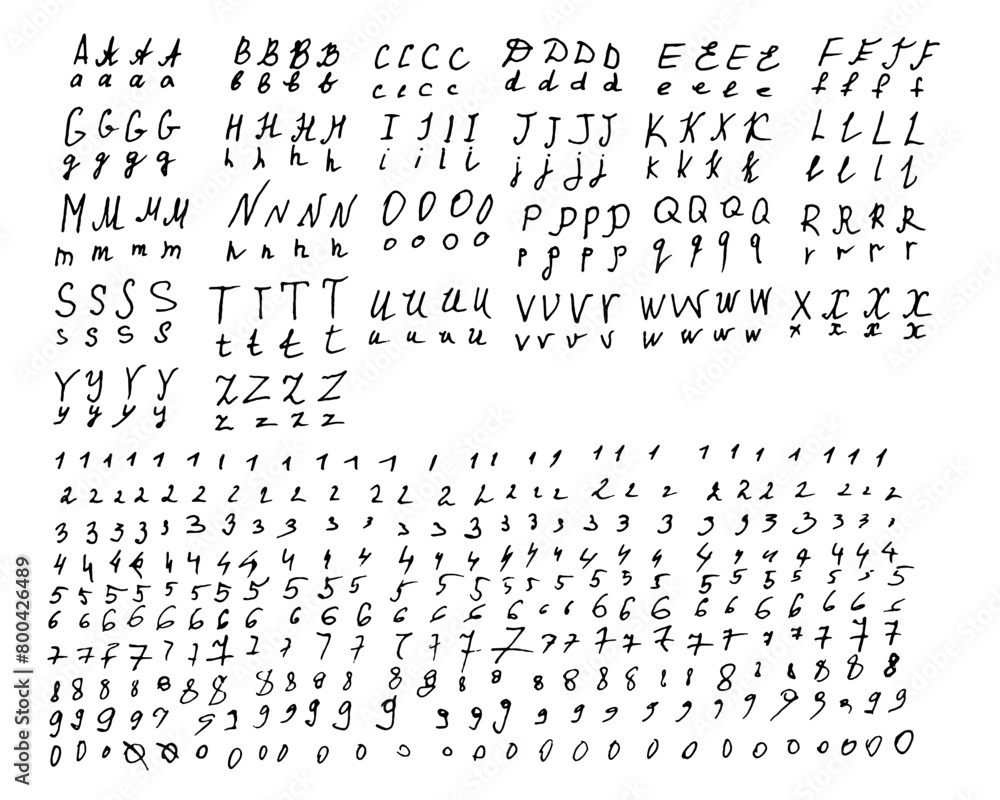 A A A A B B B B C C C C D D D D E E E E F F F F
a a a a b b b b c c c c d d d d e e e e f f f f
G G G G H H H H I I I I J J J J K K K K L L L L
g g g g h h h h i i i i j j j j k k k k l l l l
M M M M N N N N O O O O P P P P Q Q Q Q R R R R
m m m m n n n n o o o o p p p p q q q q r r r r
S S S S T T T T U U U U V V V V W W W W X X X X
s s s s t t t t u u u u v v v v w w w w x x x x
Y Y Y Y Z Z Z Z
y y y y z z z z
1 1 1 1 1 1 1 1 1 1 1 1 1 1 1 1 1 1 1 1 1 1 1 1 1 1 1 1 1
2 2 2 2 2 2 2 2 2 2 2 2 2 2 2 2 2 2 2 2 2 2 2 2 2 2 2 2
3 3 3 3 3 3 3 3 3 3 3 3 3 3 3 3 3 3 3 3 3 3 3 3 3 3 3 3
4 4 4 4 4 4 4 4 4 4 4 4 4 4 4 4 4 4 4 4 4 4 4 4 4 4 4 4
5 5 5 5 5 5 5 5 5 5 5 5 5 5 5 5 5 5 5 5 5 5 5 5 5 5 5 5
6 6 6 6 6 6 6 6 6 6 6 6 6 6 6 6 6 6 6 6 6 6 6 6 6 6 6 6
7 7 7 7 7 7 7 7 7 7 7 7 7 7 7 7 7 7 7 7 7 7 7 7 7 7 7
8 8 8 8 8 8 8 8 8 8 8 8 8 8 8 8 8 8 8 8 8 8 8 8 8 8
9 9 9 9 9 9 9 9 9 9 9 9 9 9 9 9 9 9 9 9 9 9 9 9 9 9 9
0 0 0 0 0 0 0 0 0 0 0 0 0 0 0 0 0 0 0 0 0 0 0 0 0 0 0 0 0
Adobe Stock | #800426489